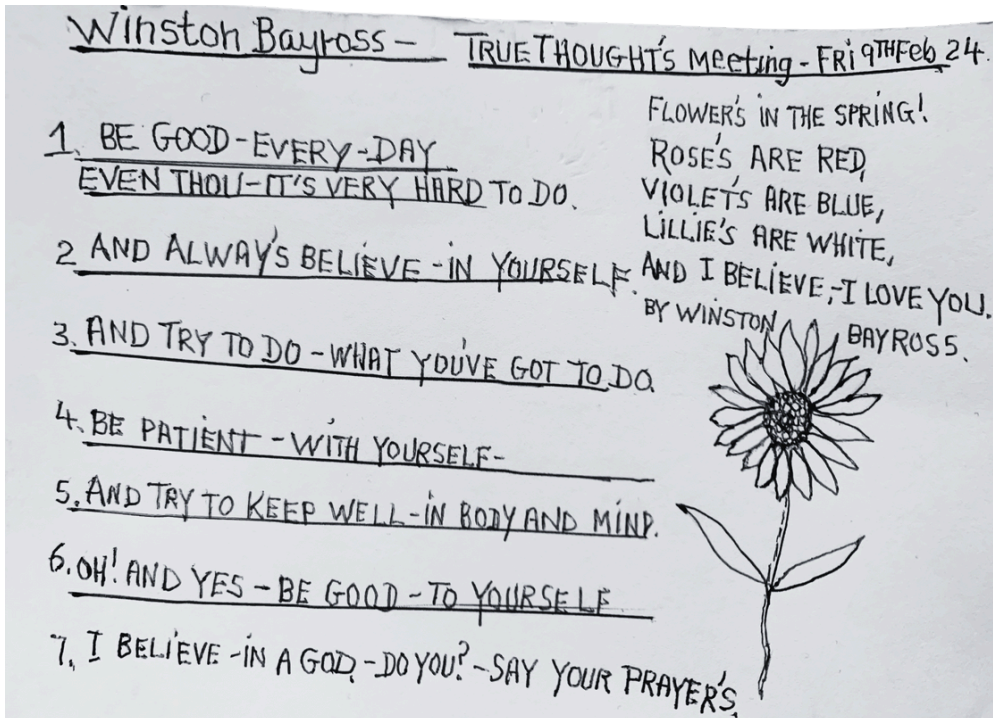 Winston Bayross - TRUE THOUGHT'S Meeting - FRI 9TH Feb 24.
1. BE GOOD - EVERY - DAY
EVEN THOU - IT'S VERY HARD TO DO.
2 AND ALWAY'S BELIEVE - IN YOURSELF.
3. AND TRY TO DO - WHAT YOU'VE GOT TO DO.
4. BE PATIENT - WITH YOURSELF -
5. AND TRY TO KEEP WELL - IN BODY AND MIND.
6. OH! AND YES - BE GOOD - TO YOURSELF
7. I BELIEVE - IN A GOD - DO YOU? - SAY YOUR PRAYER'S.
FLOWER'S IN THE SPRING!
ROSE'S ARE RED,
VIOLET'S ARE BLUE,
LILLIE'S ARE WHITE,
AND I BELIEVE, - I LOVE YOU.
BY WINSTON BAYROSS.